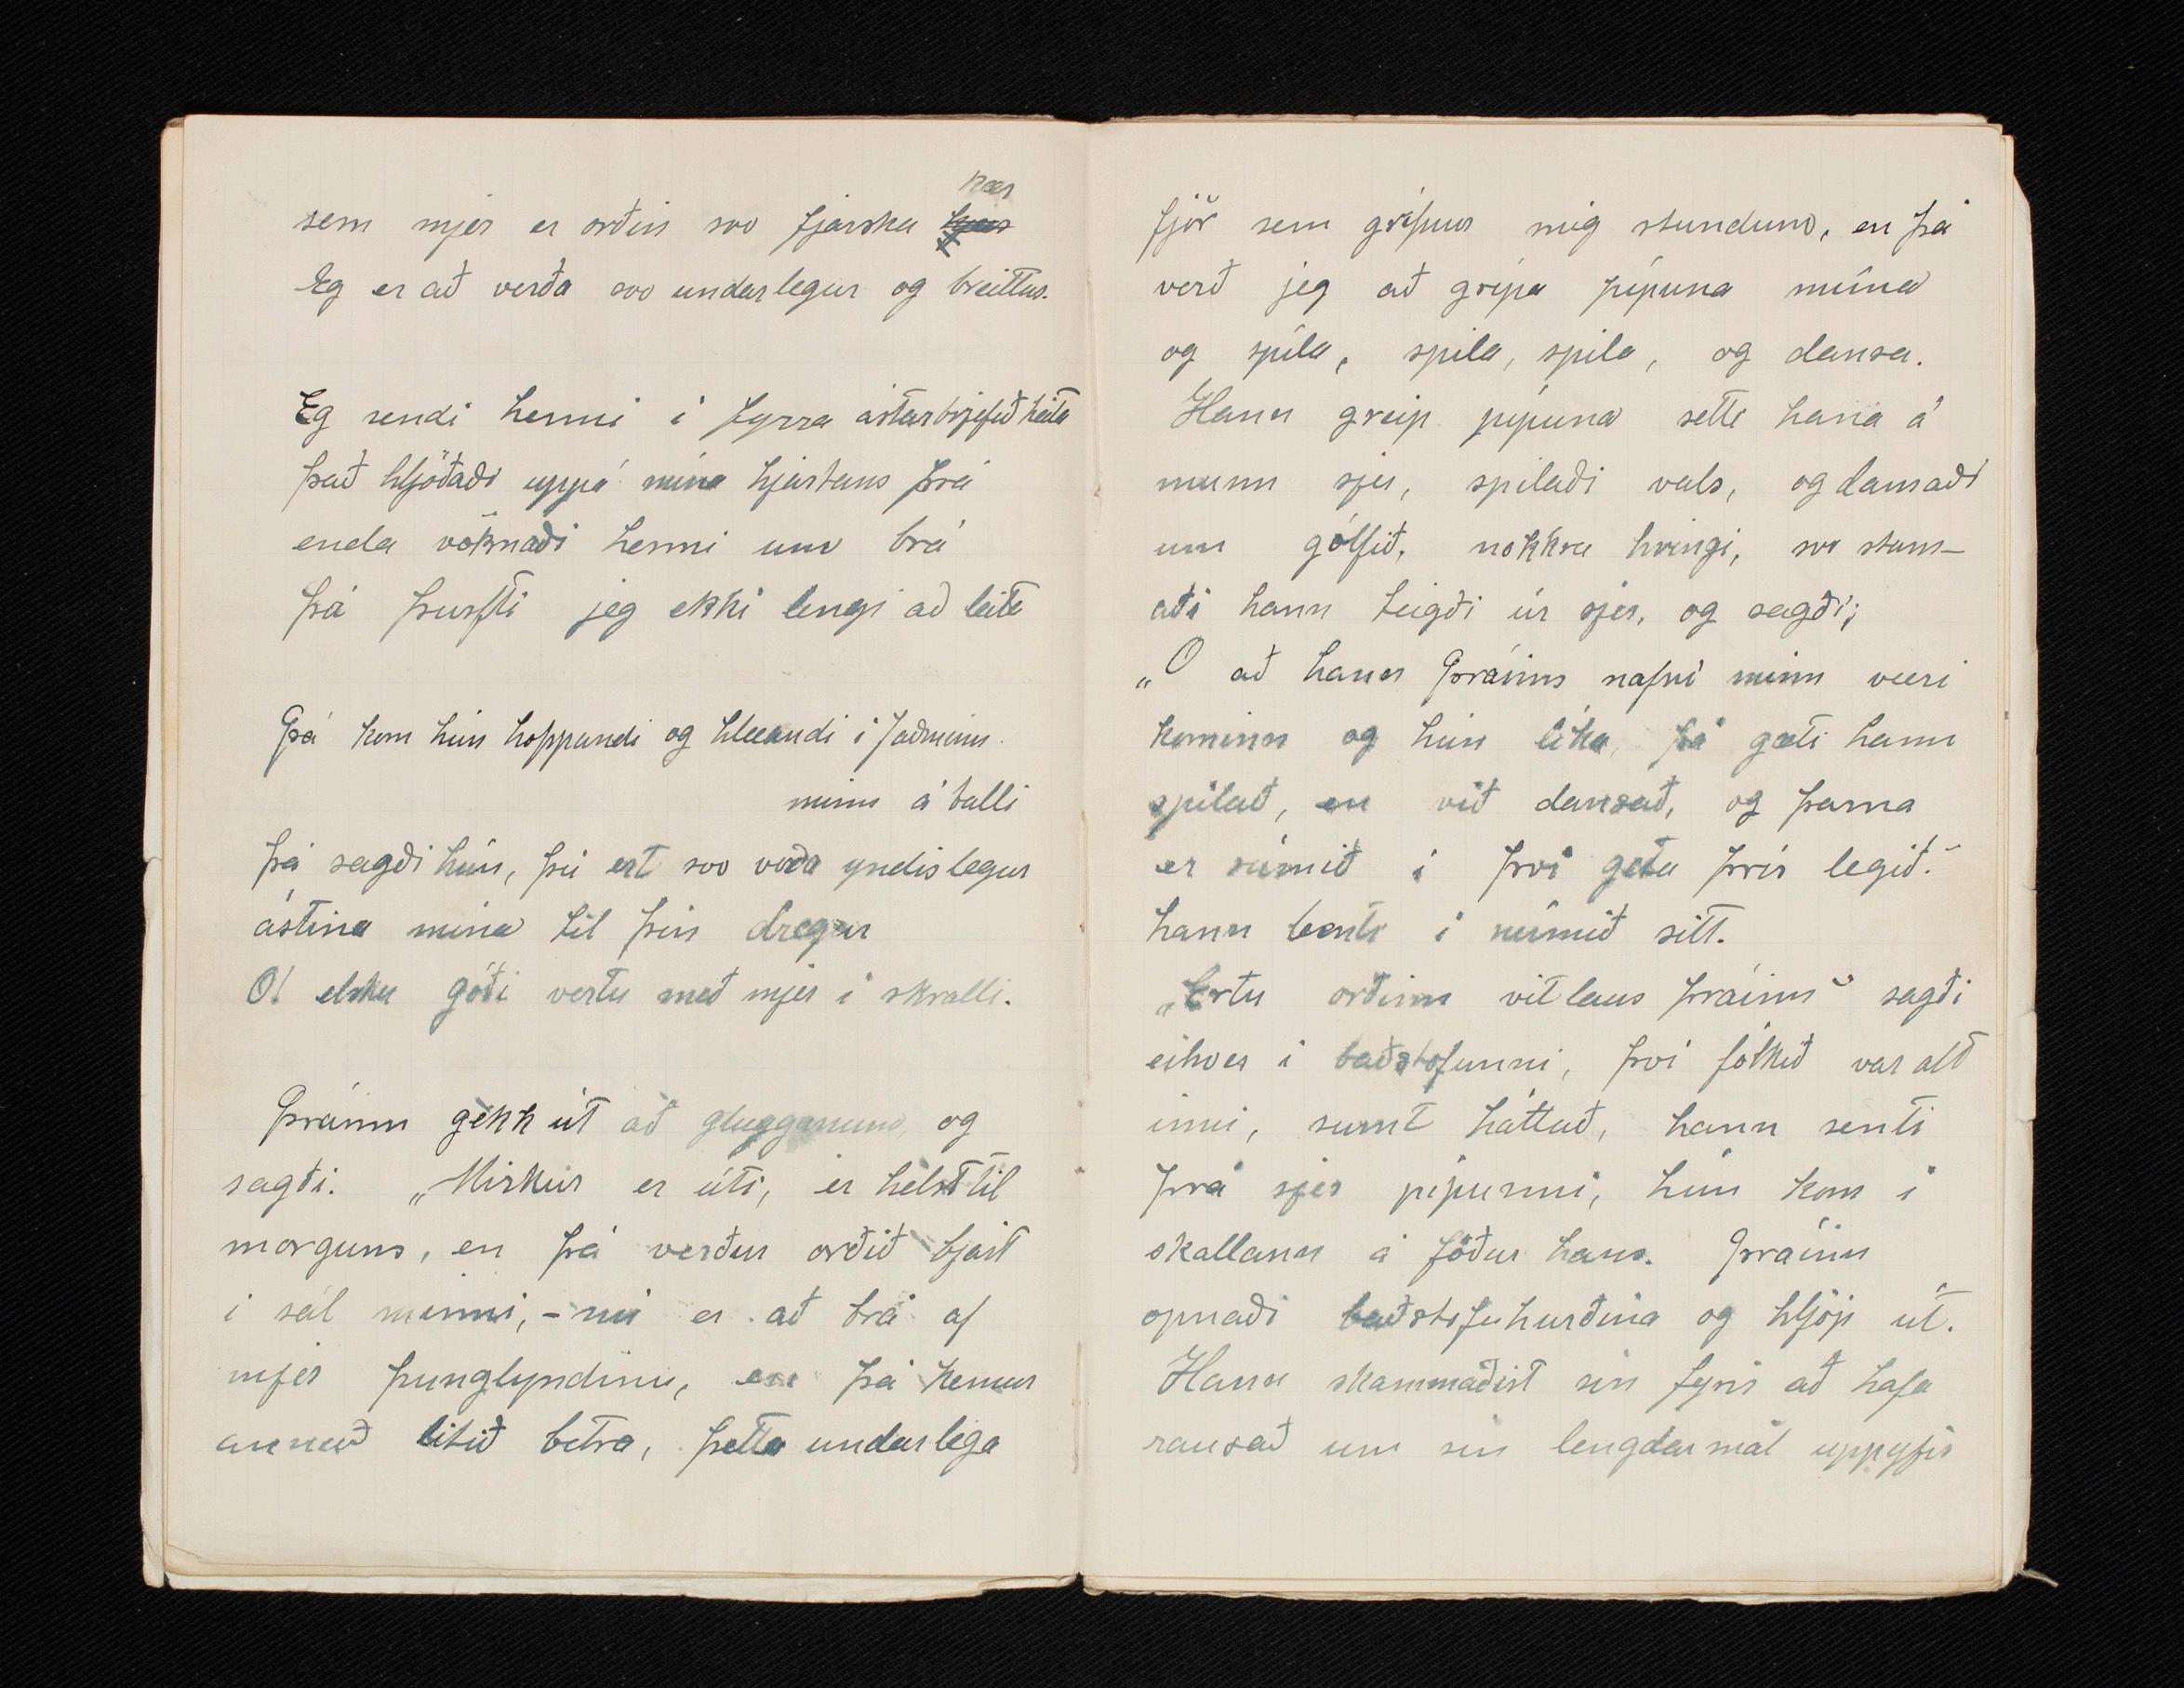 sem mjer er orðin svo fjarska kær
Eg er að verða svo undarlegur og breittur.
Eg sendi henni í fyrra ástarbrjefið heita
það hljóðaði uppá mína hjartans þrá
enda vöknaði henni um brá
þá þurfti jeg ekki lengi að leita
Þá kom hún hoppandi og hlæandi í faðminn
minn á balli
þá sagði hún, þú ert svo voða yndislegur
ástina mína til þín dregur
Ó! elsku góði vertu með mjer í skralli.
Þráinn gekk út að glugganum og
sagði. „Mirkur er úti, er helst til
morguns, en þá verður orðið bjart
í sál minni, - nú er að brá af
mjer þunglyndinu, en þá kemur
annað litið betra, þetta undarlega
fjör sem grípur mig stundum, en þá
verð jeg að grípa pípuna mína
og spila, spila, spila, og dansa.
Hann greip pípuna sette hana á
munn sjer, spilaði vals, og dansaði
um gólfið, nokkra hringi, svo stans-
aði hann teigði úr sjer, og sagði;
„Ó að hann Þráinn nafni minn væri
kominn og hún líka, þá gæti hann
spilað, en við dansað, og þarna
er rúmið í því geta þrír legið."
hann benti í rúmið sitt.
„Ertu orðinn vitlaus Þráinn" sagði
eihver í baðstofunni, því fólkið var alt
inni, sumt háttað, hann senti
frá sjer pípunni, hún kom í
skallann á föður hans. Þráinn
opnaði baðstofuhurðina og hljóp út.
Hann skammaðist sín fyrir að hafa
rausað um sín lengdarmál uppyfir